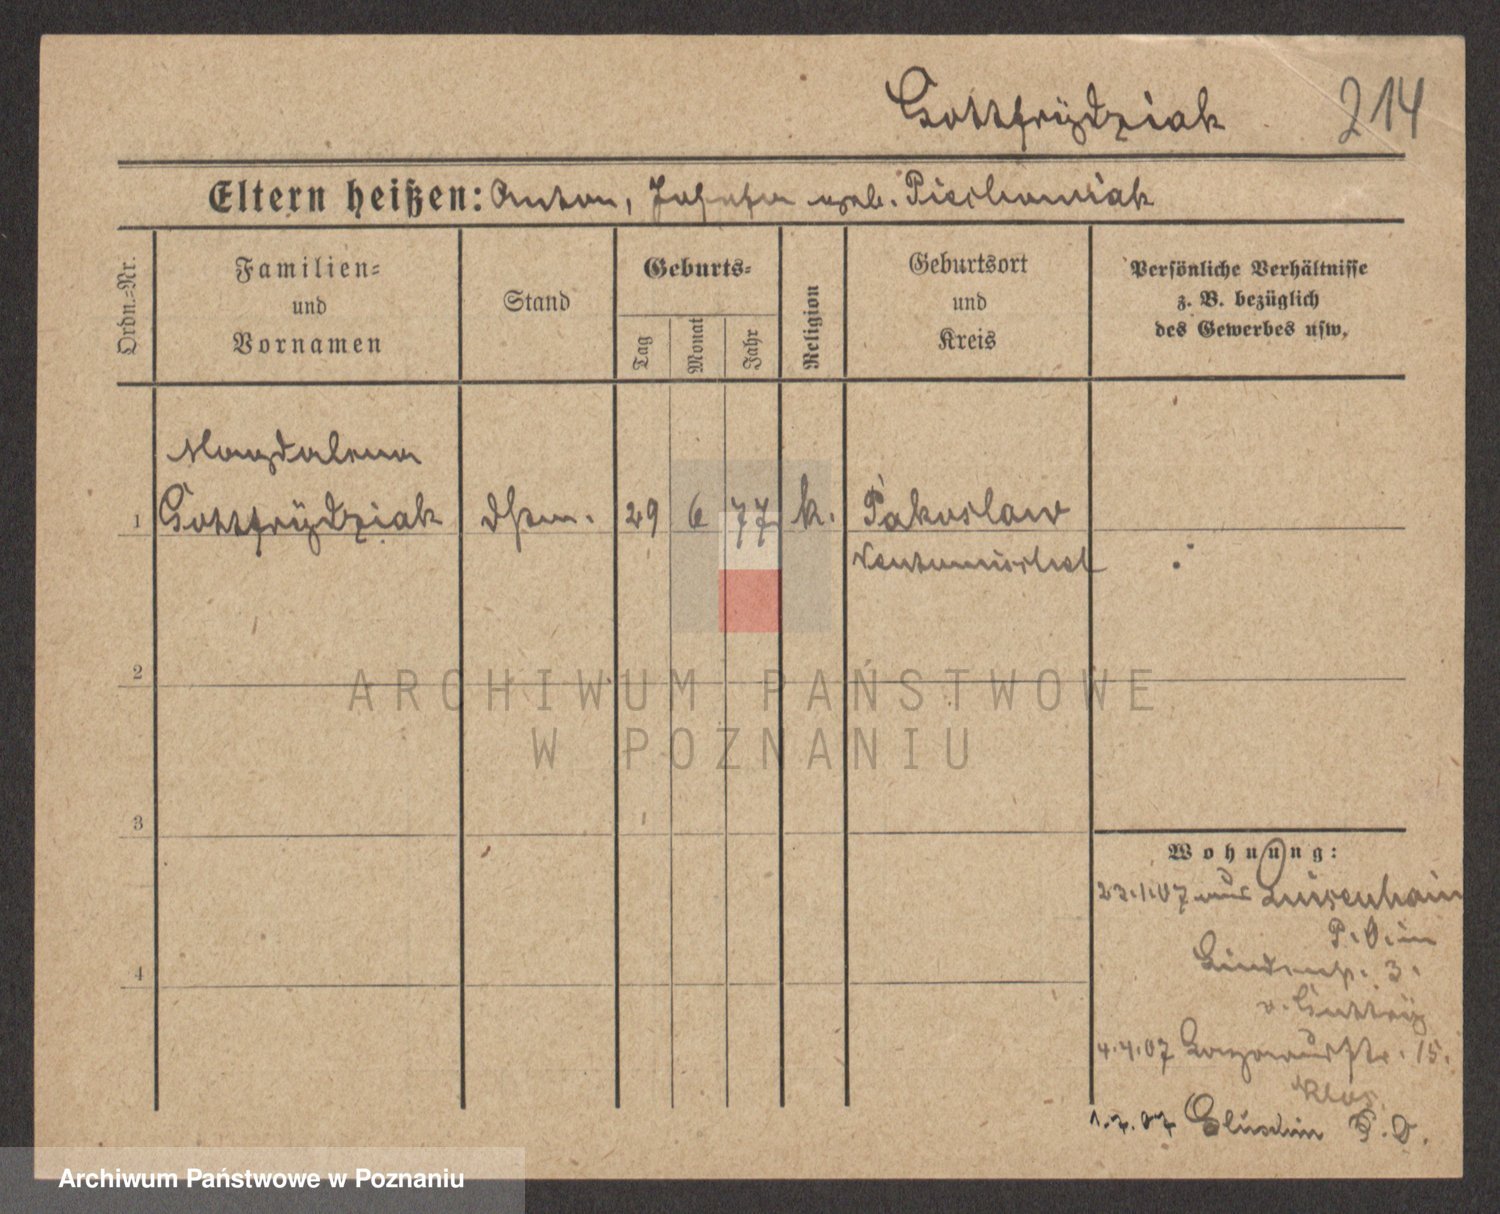 Gottfrÿdziak 214
Eltern heißen: Anton, Josefa geb. Piechowiak
Ordn.-Nr.
Familien-
und
Vornamen
Stand
Geburts-
Tag
Monat
Jahr
Religion
Geburtsort
und
Kreis
Persönliche Verhältnisse
z. B. bezüglich
des Gewerbes usw.
Magdalena
1 Gottfrÿdziak 29 6 77 k. Pakoslaw
Neutomischel
2
3
4
Wohnung:
23.1.07 aus Luisenhain
P.O. in
Lindenstr. 3.
v.
4.4.07 15.
1.7.07 P.O.
ARCHIWUM PAŃSTWOWE
W POZNANIU
Archiwum Państwowe w Poznaniu